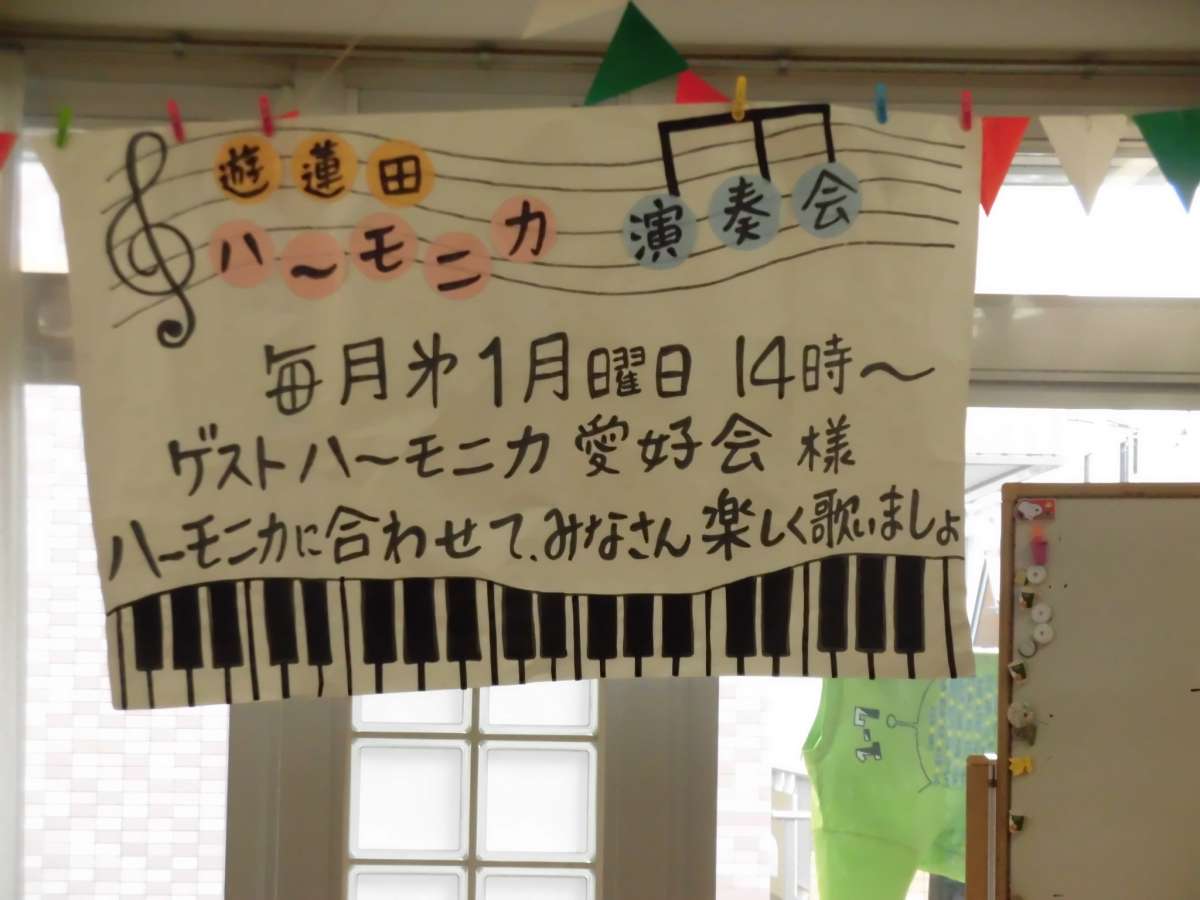 遊蓮田
ハーモニカ 演奏会
毎月㐧1月曜日 14時～
ゲストハーモニカ愛好会 様
ハーモニカに合わせて、みなさん楽しく歌いましょ